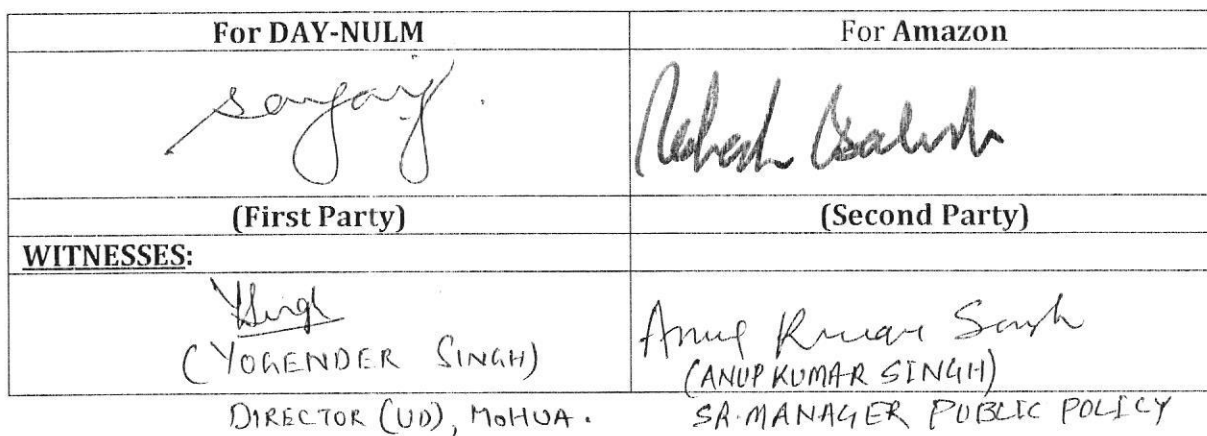 For DAY-NULM For Amazon
sanjay
(First Party) (Second Party)
WITNESSES:
YSingh Anup Kumar Singh
(YOGENDER SINGH) (ANUP KUMAR SINGH)
DIRECTOR (UD), MoHUA. SR. MANAGER PUBLIC POLICY